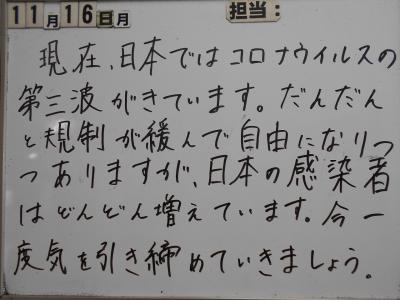 11月16日月 担当:
現在、日本ではコロナウイルスの
第三波がきています。だんだん
と規制が緩んで自由になりつ
つありますが、日本の感染者
はどんどん増えています。今一
度気を引き締めていきましょう。